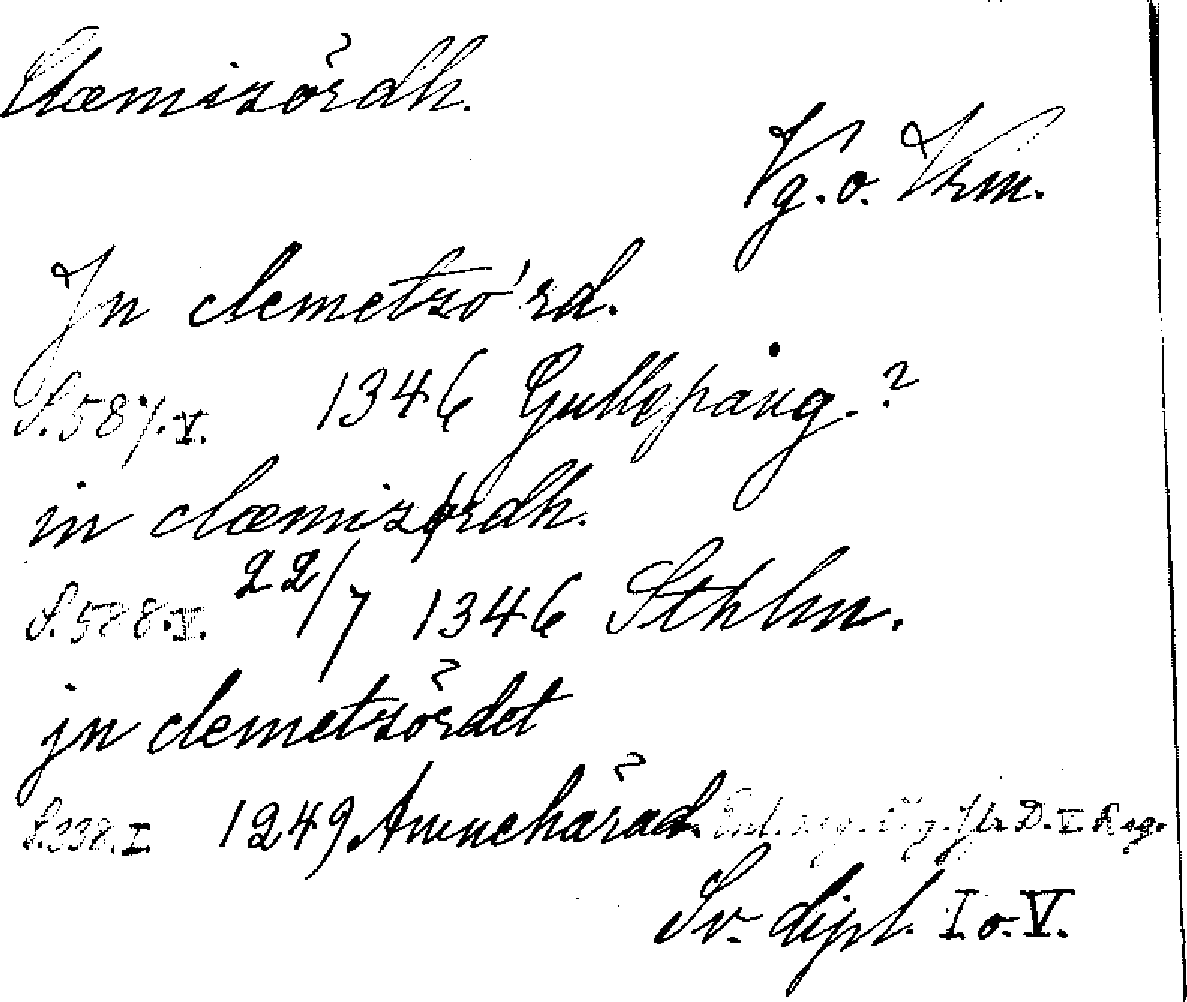 Clæmizördh.
Vg. o. Vrm.
Jn clemetzörd.
S. 587. V. 1346 Gullspång?
in clæmizørdh.
S. 588. V. 22/7 1346 Sthlm.
jn clemetzördet
S. 338. I. 1249 Amnehärad. Enl. reg. Vg. jfr D. V Reg.
Sv. dipl. I. o. V.